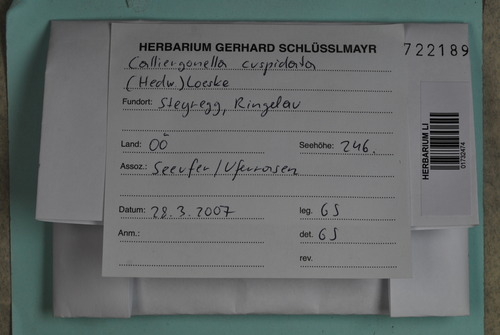 HERBARIUM GERHARD SCHLÜSSLMAYR
Calliergonella cuspidata
(Hedw.) Loeske
Fundort: Steyregg, Ringelau
Land: OÖ Seehöhe: 246.
Assoz.: Seeufer/Uferrasen
Datum: 28.3.2007 leg. GS
Anm.: det. GS
rev.
722189
HERBARIUM LI
01732474